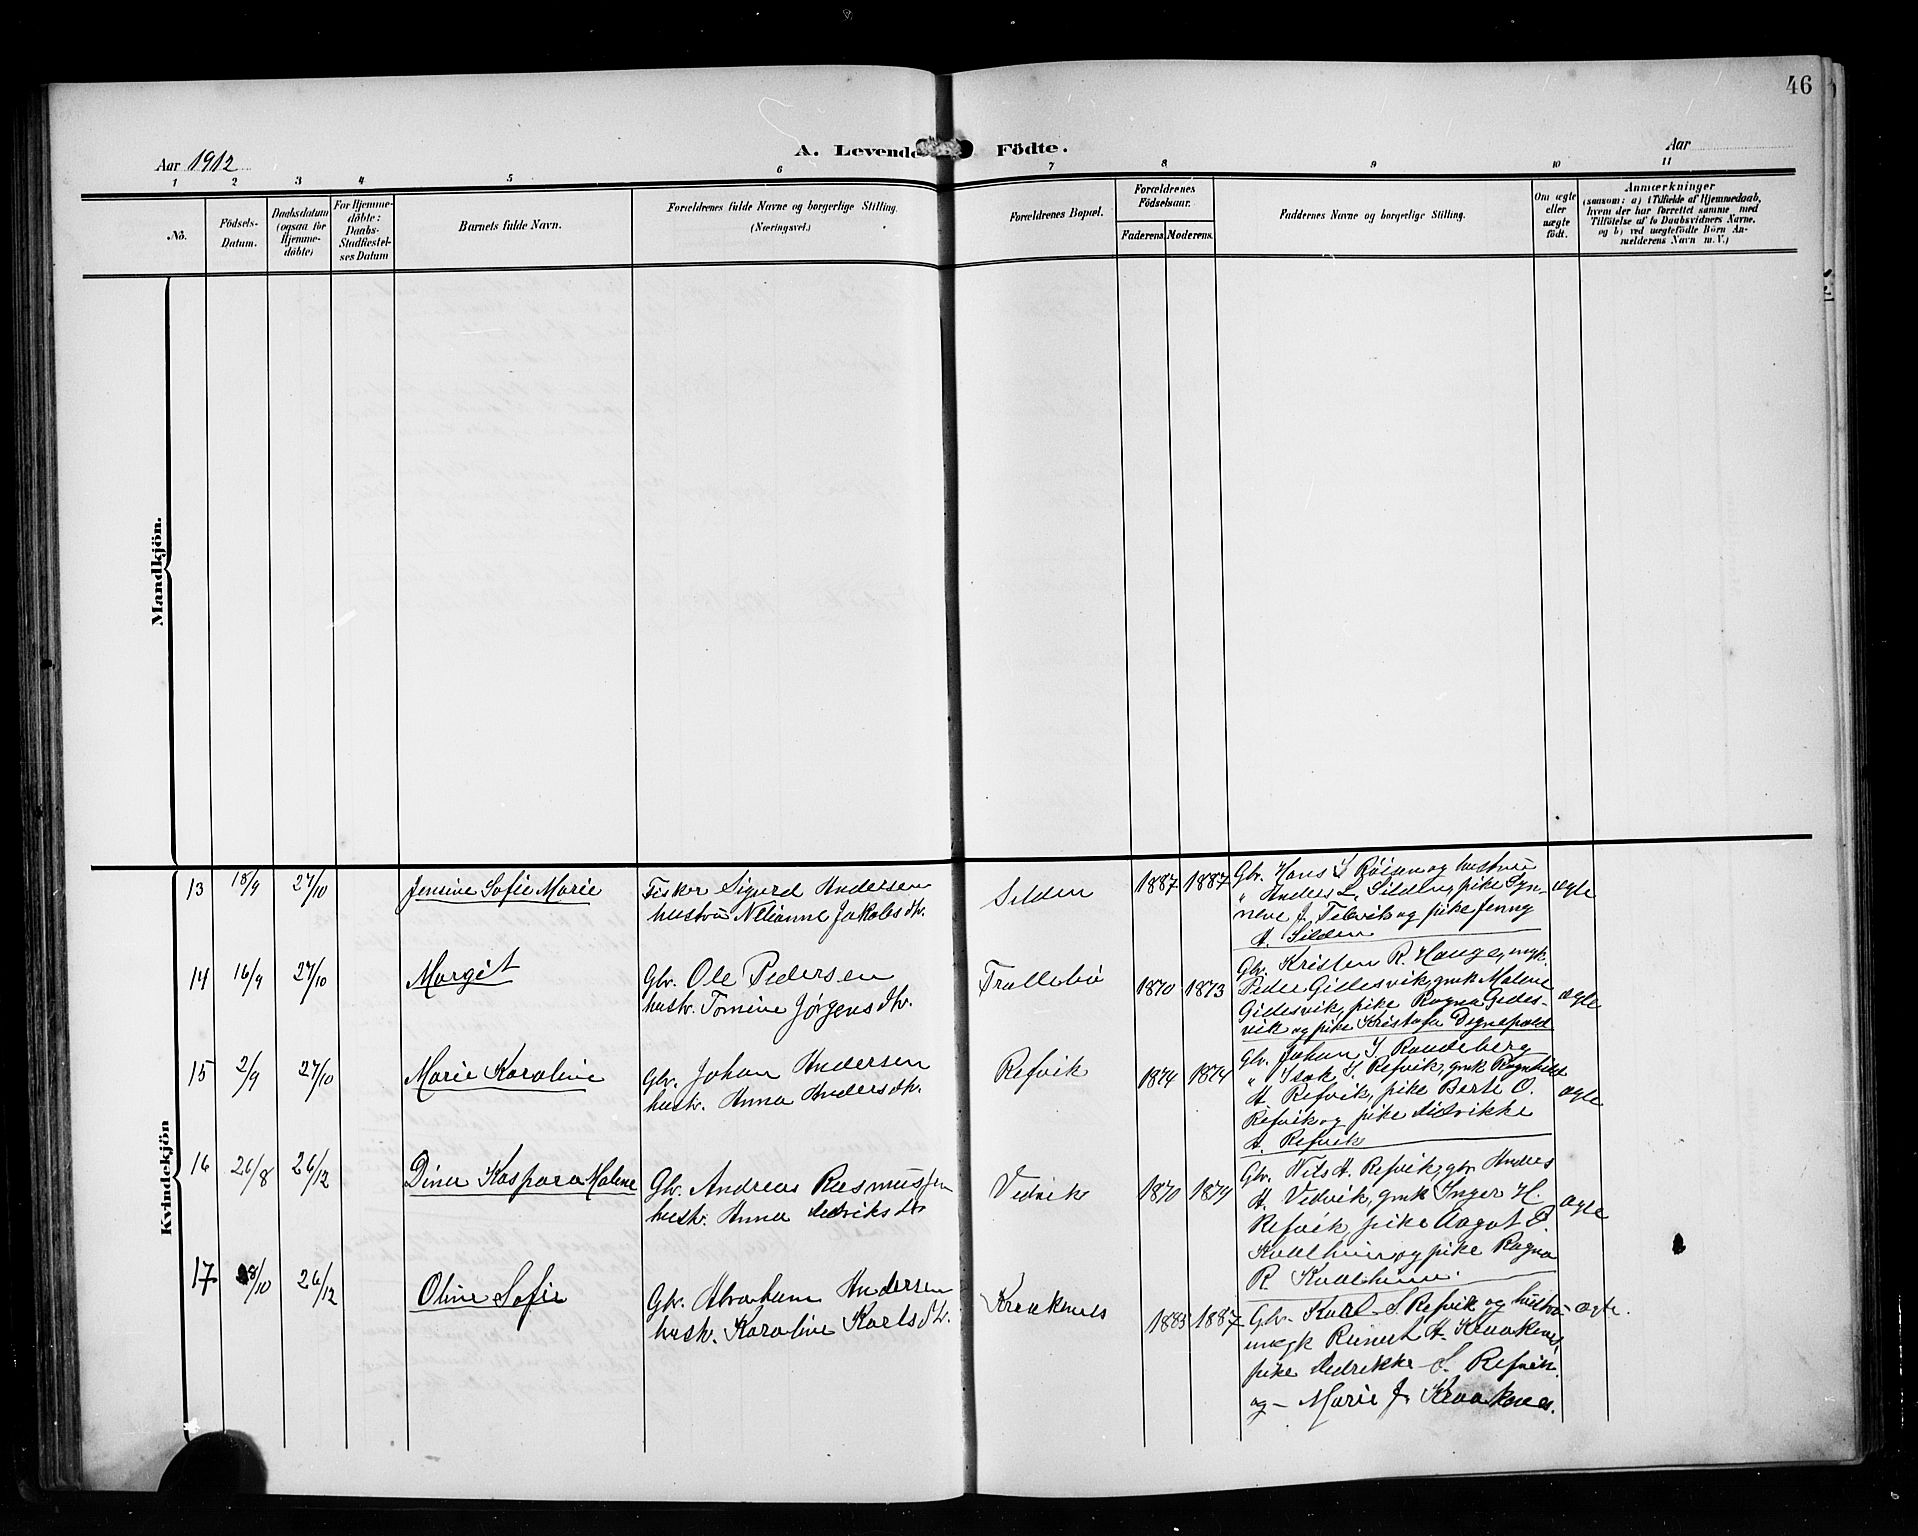 46
Aar 1912
A. Levende Födte.
Aar
1 2 3 4 5 6 7 8 9 10 11
No.
Födsels-
Datum.
Daabsdatum
(ogsaa for
Hjemme-
döbte)
For Hjemme-
döbte:
Daabs-
Stadfæstel-
ses Datum
Barnets fulde Navn.
Forældrenes fulde Navne og borgerlige Stilling.
(Næringsvei.)
Forældrenes Bopæl.
Forældrenes
Födselsaar.
Faderens. Moderens.
Faddernes Navne og borgerlige Stilling.
Om ægte
eller
uægte
födt.
Anmærkninger
(saasom: a) i Tilfælde af Hjemmedaab,
hvem der har forrettet samme med
Tilföielse af to Daabsvidners Navne,
og b) ved uægtefödte Börn An-
melderens Navn m. V.)
Mandkjön.
Kvindekjön
13 18/9 27/10 Jensine Sofie Marie
Fisker Sigurd Andersen
hustru Nelianne Jakobsdtr.
Silden 1887 1887
Gbr. Hans S. Röisen og hustru
" Anders L. Silden, pike Syn-
neve J. Felvik og pike Jenny
A. Silden
ægte
14 16/9 27/10 Margit
Gbr. Ole Pedersen
hustr. Tomine Jørgensdtr.
Trollebö 1870 1873
Gbr. Kristen R. Hauge, ungk.
Peder Gillesvik, gmk Malene
Gillesvik, pike Ragna Gilles-
vik og pike Kristofa Dignepold
ægte
15 2/9 27/10 Marie Karoline
Gbr. Johan Andersen
hustr. Anna Andersdtr.
Refvik 1874 1874
Gbr. Johan J. Raudeberg
" Isak H. Refvik, gmk Ragnhild
A. Refvik, pike Berte O.
Refvik og pike Didrikke
A. Refvik
ægte
16 26/8 26/12 Dina Kaspara Malene
Gbr. Andreas Rasmussen
hustr. Anna Didriksdtr
Vedvik 1870 1879
Gbr. Nils A. Refvik, gbr. Andres
A. Vedvik, gmk Inger H.
Refvik, pike Aagot P.
Kvalheim og pike Ragna
R. Kvalheim.
ægte
17 8/10 26/12 Oline Sofie
Gbr. Abraham Andersen
hustr. Karoline Karlsdtr.
Kraaknes 1883 1887
Gbr. Karl S. Refvik og hustru
ungk Reinert A. Kraaknes,
pike Didrikke S. Refvik
og - Marie J. Kraaknes.
ægte.